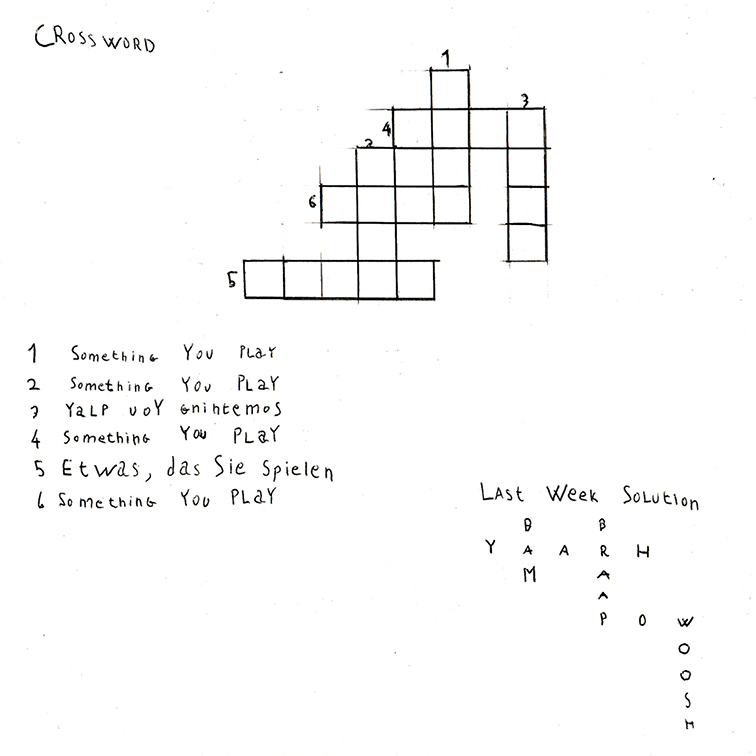 CROSSWORD
1
3
4
2
6
5
1 Something YOU PLaY
2 Something YOU PLaY
3 YaLP uoY gnihtemos
4 Something YOU PLaY
5 Etwas, das Sie spielen
6 Something YOU PLaY
LAST WEEK SOLUTION
B B
Y A A R H
M A
A
P O W
O
O
S
H